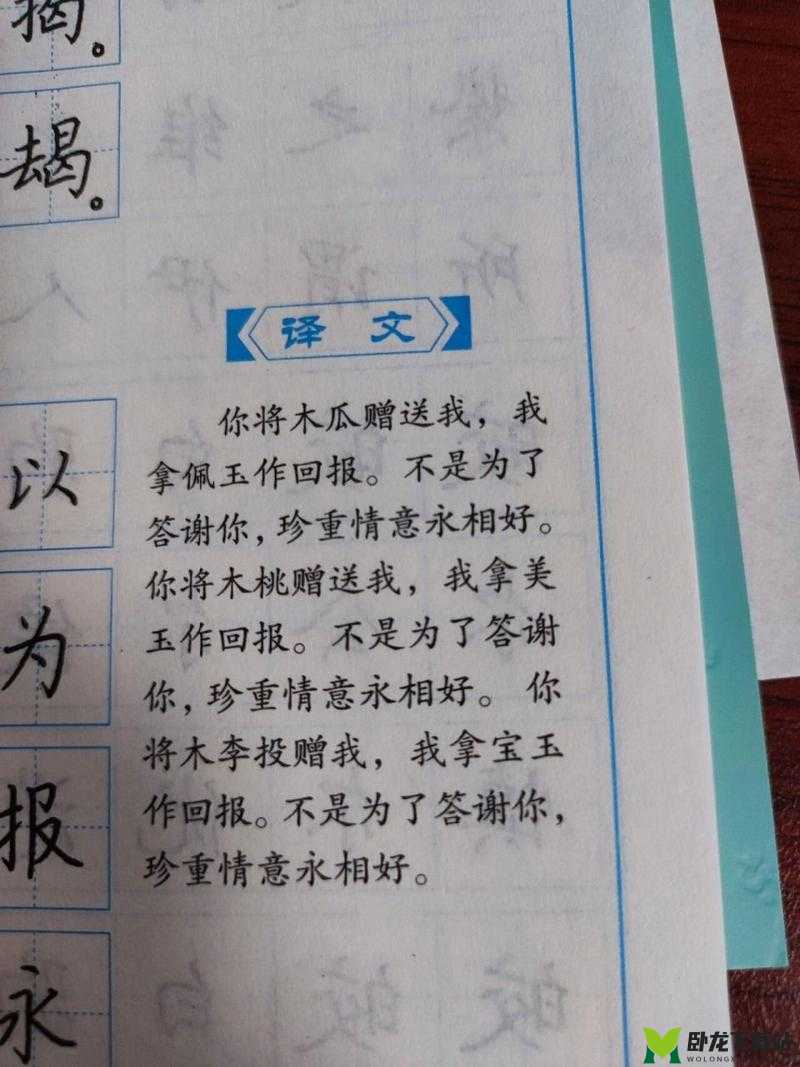 揭。
朅。
译 文
你将木瓜赠送我，我
拿佩玉作回报。不是为了
答谢你，珍重情意永相好。
你将木桃赠送我，我拿美
玉作回报。不是为了答谢
你，珍重情意永相好。你
将木李投赠我，我拿宝玉
作回报。不是为了答谢你，
珍重情意永相好。
以
为
报
永
卧龙